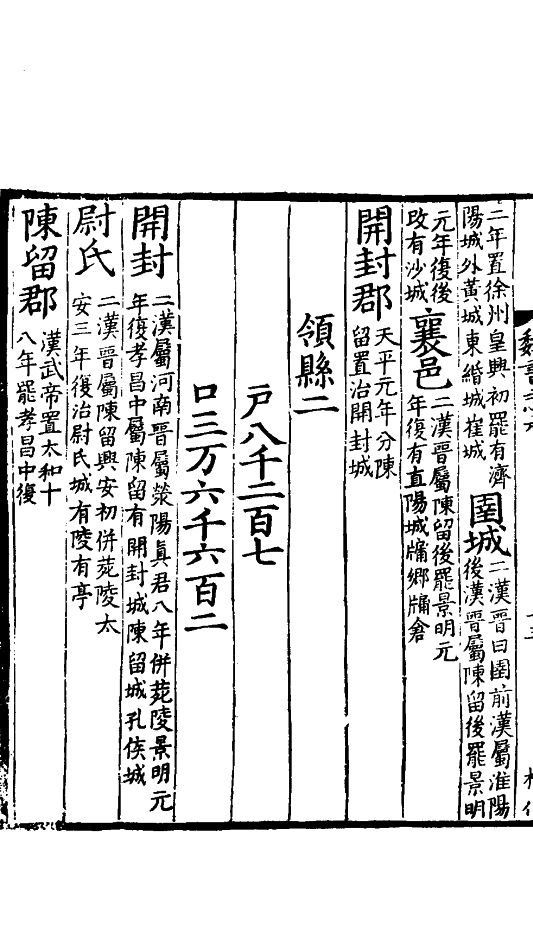 二年置徐州皇興初罷有濟
陽城外黃城東緡城崔城
圉城
二漢晉曰圉前漢屬淮陽
後漢晉屬陳留後罷景明
元年復後
改有沙城
襄邑
二漢晉屬陳留後罷景明元
年復有直陽城牖鄉牖倉
開封郡
天平元年分陳
留置治開封城
領縣二
戸八千二百七
口三万六千六百二
開封
二漢屬河南晉屬滎陽眞君八年併菀陵景明元
年復孝昌中屬陳留有開封城陳留城孔侯城
尉氏
二漢晉屬陳留興安初併菀陵太
安三年復治尉氏城有陵有亭
陳留郡
漢武帝置太和十
八年罷孝昌中復